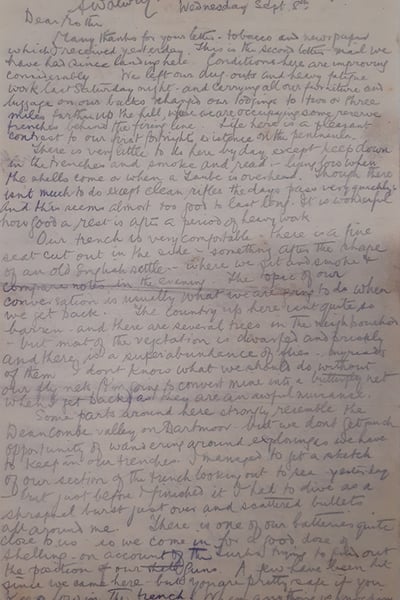 Wednesday Sept. 8th
Dear
Many thanks for your letter - tobacco and newspapers
which I received yesterday. This is the second letter-mail we
have had since landing here. Conditions here are improving
considerably We left our dug-outs and heavy fatigue
work last Saturday night - and carrying all our furniture and
luggage on our backs changed our lodgings to two or three
miles further up the hill, where we are occupying some reserve
trenches behind the firing line. Life here is a pleasant
contrast to our first fortnight's existence on the peninsula.
There is very little to do here by day except keep down
in the trenches and smoke and read - lying low when
the shells come or when a Taube is overhead. Though there
isn't much to do except clean rifles the days pass very quickly
and this seems almost too good to last long. It is wonderful
how good a rest is after a period of heavy work
Our trench is very comfortable there is a fine
seat cut out in the side - something after the shape
of an old English settle - where we sit and smoke &
compare notes in the evening The topic of our
conversation is usually what we are going to do when
we get back. The country up here isn't quite so
barren - and there are several trees in the neighbourhood
- but most of the vegetation is dwarfed and prickly
and there is a superabundance of flies - myriads
of them I don't know what we should do without
our fly nets (I'm going to convert mine into a butterfly net
when I get back) as they are an awful nuisance.
Some parts around here strongly resemble the
Deancombe valley on Dartmoor but we don't get much
opportunity of wandering around exploring as we have
to keep in our trenches. I managed to get a sketch
of our section of the trench looking out to sea yesterday
- but just before I finished it I had to dive as a
shrapnel burst just over and scattered bullets
all around me. There is one of our batteries quite
close to us so we come in for a good dose of
shelling - on account of the Turks trying to find out
the position of our guns. A few have been hit
since we came here - but you are pretty safe if you
low in the trench. When anything is knocking